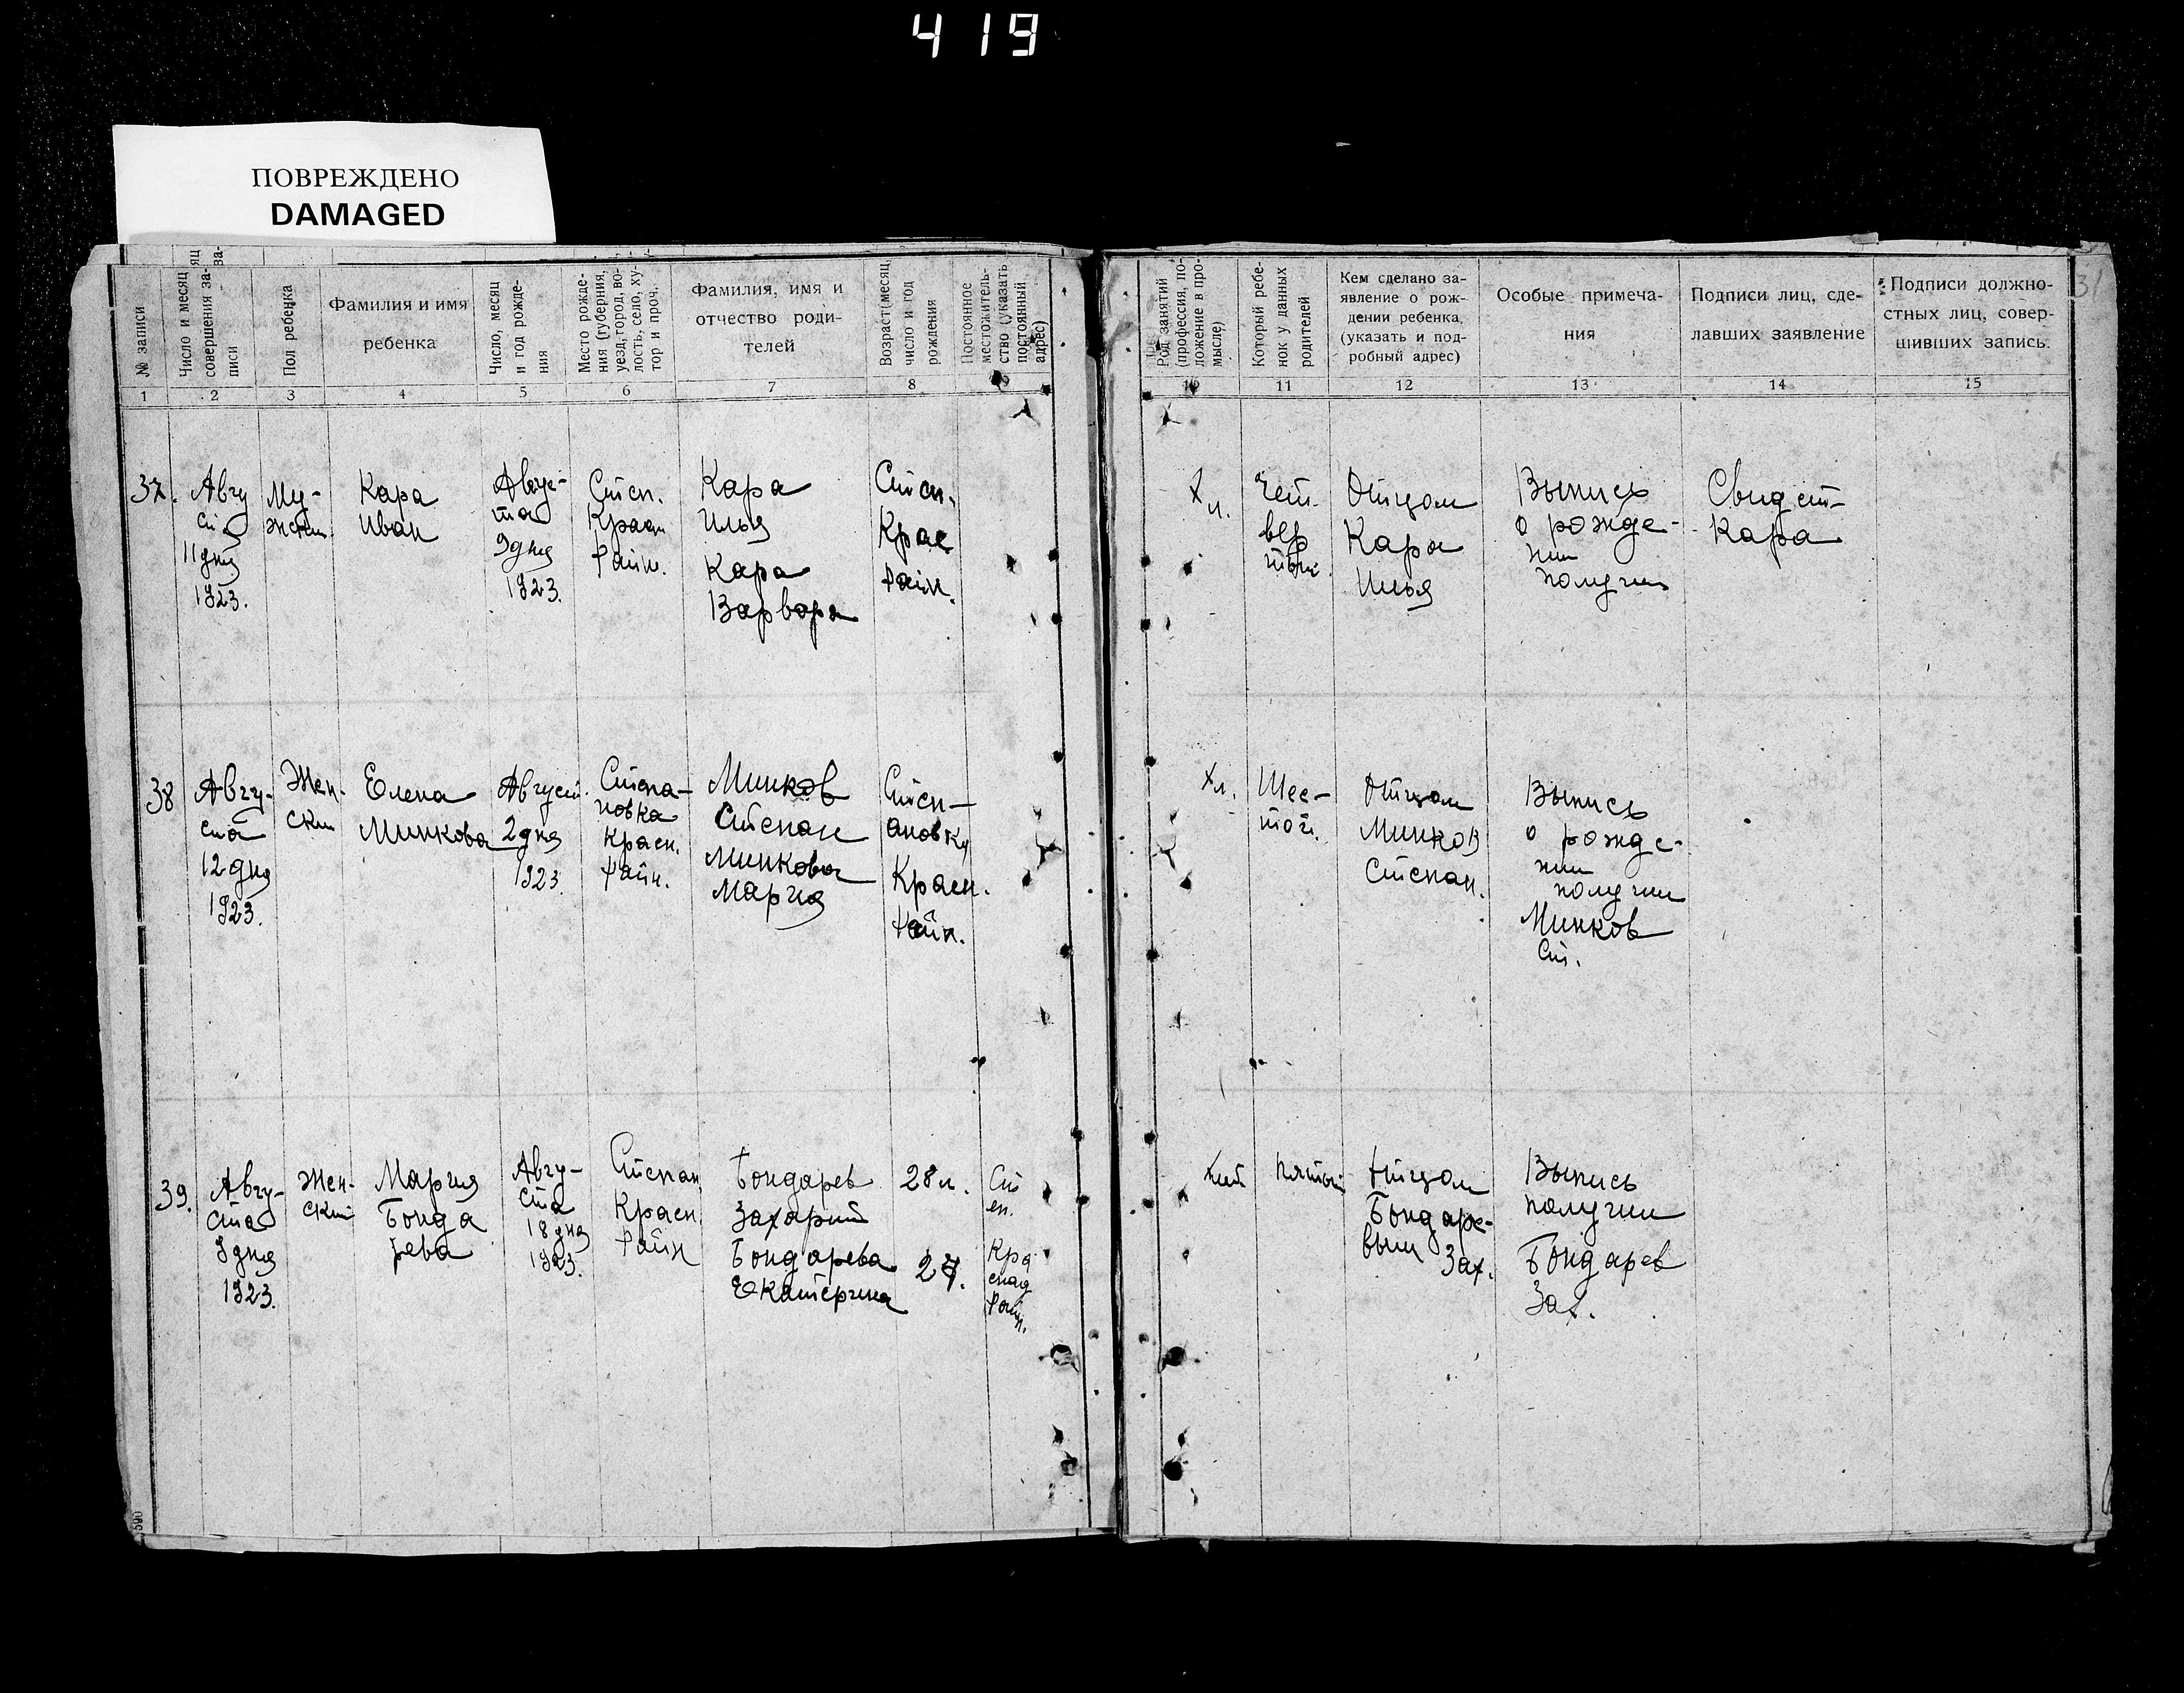 419
ПОВРЕЖДЕНО
DAMAGED
№ записи
Число и месяц
совершения за-
писи
Пол ребенка
Фамилия и имя
ребенка
Число, месяц
и год рожде-
ния
Место рожде-
ния (губерния,
уезд, город, во-
лость, село, ху-
тор и проч.
Фамилия, имя и
отчество роди-
телей
Возраст (месяц,
число и год
рождения
Постоянное
местожитель-
ство (указать
постоянный
адрес)
Род занятий
(профессия, по-
ложение в про-
мысле)
Который ребе-
нок у данных
родителей
Кем сделано за-
явление о рож-
дении ребенка,
(указать и под-
робный адрес)
Особые примеча-
ния
Подписи лиц, сде-
лавших заявление
Подписи должно-
стных лиц, совер-
шивших запись.
1 2 3 4 5 6 7 8 11 12 13 14 15
37.
Авгу
ст
11 дня
1923.
Му-
жск.
Кара
Иван
Авгус-
та
9 дня
1923.
Степ.
Красн
райн.
Кара
Илья
Кара
Варвара
Степ.
Крас
райн.
Х
л.
Чет-
вер
тый
Отцом
Кара
Илья
Выпись
о рожде-
нии
получил
Свидет-
Кара
38
Авгу-
ста
12 дня
1923.
Жен-
ски
Елена
Минкова
Август.
2 дня
1923.
Степа-
новка
Красн.
райн.
Минков
Степан
Минкова
Мария
Степ-
ановку
Красн.
райн.
Хл.
Шес-
той.
Отцом
Минков
Степан.
Выпись
о рожде-
нии
получил
Минков
Ст.
39.
Авгу-
ста
9 дня
1923.
Жен-
ский
Мария
Бонда
рева
Авгу-
ста
18 дня
1923.
Степан
Красн
райн
Бондарев
Захарий
Бондарева
Екатерина
28 л.
27.
Ст
еп.
Кра
снад
райн.
пятой
Отцом
Бондаре-
вым
Зах.
Выпись
получил
Бондарев
Зах.